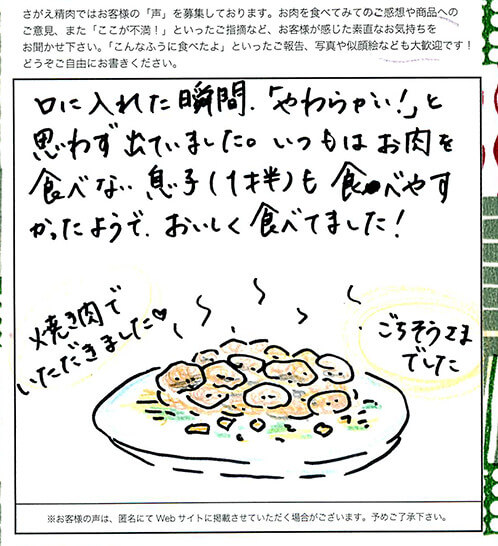 さがえ精肉ではお客様の「声」を募集しております。お肉を食べてみてのご感想や商品への
ご意見、また「ここが不満！」といったご指摘など、お客様が感じた素直なお気持ちを
お聞かせ下さい。「こんなふうに食べたよ」といったご報告、写真や似顔絵なども大歓迎です！
どうぞご自由にお書きください。
口に入れた瞬間、「やわらかい！」と
思わず出ていました。いつもはお肉を
食べない息子(1才半)も食べやす
かったようで、おいしく食べてました！
焼き肉で
いただきました♡
ごちそうさま
でした
※お客様の声は、匿名にてWebサイトに掲載させていただく場合がございます。予めご了承下さい。